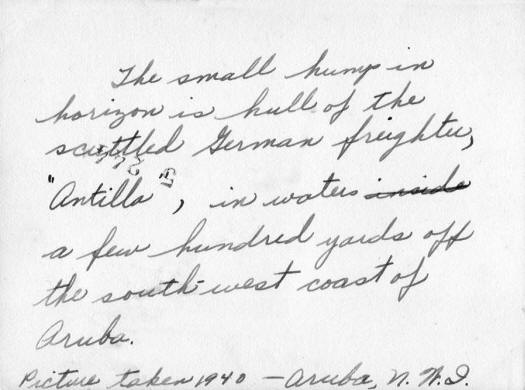 The small hump in
horizon is hull of the
scuttled German freighter,
"Antilla", in waters inside
a few hundred yards off
the south-west coast of
Aruba.
Picture taken 1940 — Aruba, N.W.I.